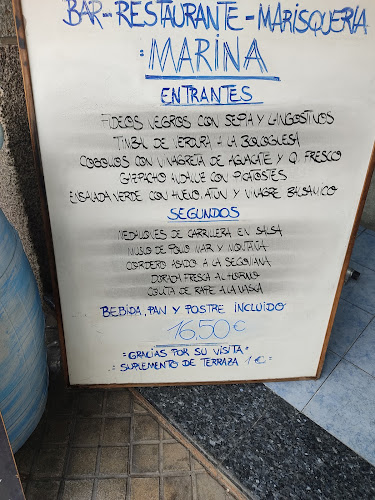 BAR-RESTAURANTE-MARISQUERÍA
:MARINA:
ENTRANTES
FIDEOS NEGROS CON SEPIA Y LANGOSTINOS
TIMBAL DE VERDURA A LA BOLOGLESA
COGOLLOS CON VINAGRETA DE AGUACATE Y Q. FRESCO
GAZPACHO ANDALUZ CON PICATOSTES
ENSALADA VERDE CON HUEVO, ATÚN Y VINAGRE BALSÁMICO
SEGUNDOS
MEDALLONES DE CARRILLERA EN SALSA
MUSLO DE POLLO MAR Y MONTAÑA
CORDERO ASADO A LA SEGOVIANA
DORADA FRESCA AL HORNO
COLITA DE RAPE A LA VASCA
BEBIDA, PAN Y POSTRE INCLUIDO
16,50€
:GRACIAS POR SU VISITA:
:SUPLEMENTO DE TERRAZA 1€: